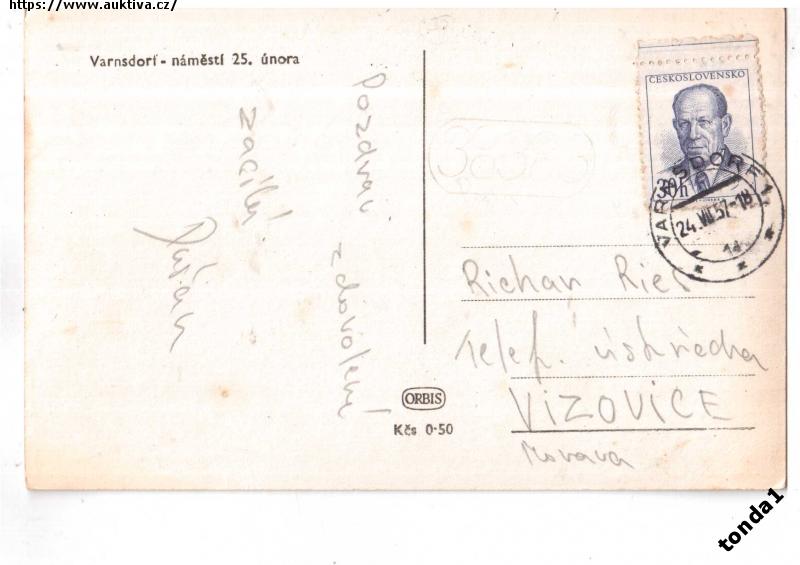 https://www.auktiva.cz/
Varnsdorf - náměstí 25. února
Pozdrav z dovolené
zasílá
Dušan
ČESKOSLOVENSKO
30 h
VARNSDORF 1
24.VII.57-18
1d
Richar Ries
Telef. ústředna
VIZOVICE
Morava
ORBIS
Kčs 0·50
tonda1